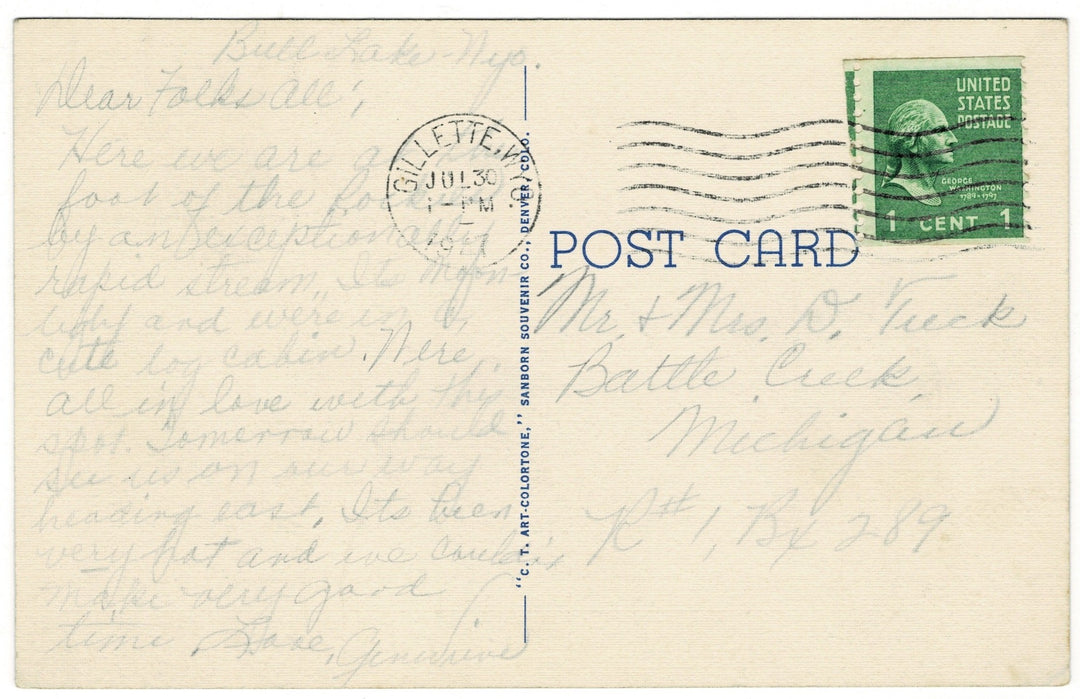 Bull Lake - Wyo.
Dear Folks All;
Here we are at the
foot of the Rockies
by an exceptionally
rapid stream. Its Moon-
light and were in a
cute log cabin. Were
all in love with this
spot. Tomorrow should
see us on our way
heading east. Its been
very hot and we couldn't
make very good
time Love, Genevieve
GILLETTE, WYO.
JUL 30
PM
"C. T. ART-COLORTONE," SANBORN SOUVENIR CO., DENVER, COLO.
UNITED
STATES
POSTAGE
GEORGE
WASHINGTON
1789-1797
1 CENT 1
POST CARD
Mr. & Mrs. D. Tuck
Battle Creek
Michigan
R# 1, Bx 289